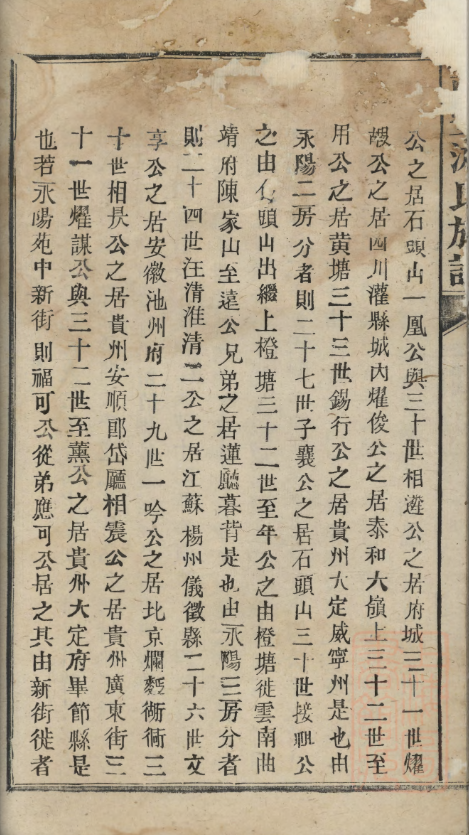 公之居石頭山一凰公與三十世相遊公之居府城三十一世燿
煆公之居四川灌縣城內燿俊公之居泰和大嶺上三十二世至
用公之居黃塘三十三世錫行公之居貴州大定威寧州是也由
永陽二房分者則二十七世子襄公之居石頭山三十世接覞公
之由石頭山出繼上橙塘三十二世至年公之由橙塘徙雲南曲
靖府陳家山至遠公兄弟之居蓮廳暮背是也由永陽三房分者
則二十四世汪清淮清二公之居江蘇楊州儀徵縣二十六世文
享公之居安徽池州府二十九世一吟公之居北京爛麪衚衕三
十世相長公之居貴州安順郎岱廳相震公之居貴州廣東街三
十一世燿謀公與三十二世至薰公之居貴州大定府畢節縣是
也若永陽苑中新街則福可公從弟應可公居之其由新街徙者
氏族譜